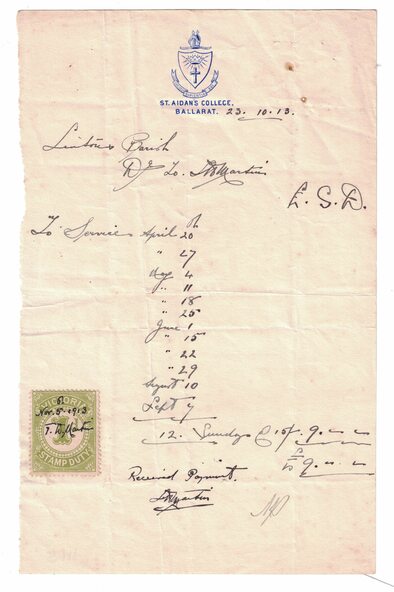 ST. AIDANS COLLEGE,
BALLARAT. 23. 10. 13.
Linton Parish
Dr. To. Martin
£. S. D.
To Services April 20th
" 27
May 4
" 11
" 18
" 25
June 1
" 15
" 22
" 29
August 10
Sept 7
12. Sundays @ 15/. 9. - -
£ 9. - -
Received Payment.
Martin
VICTORIA
Nov. 5th 1913
T. W. Martin
STAMP DUTY